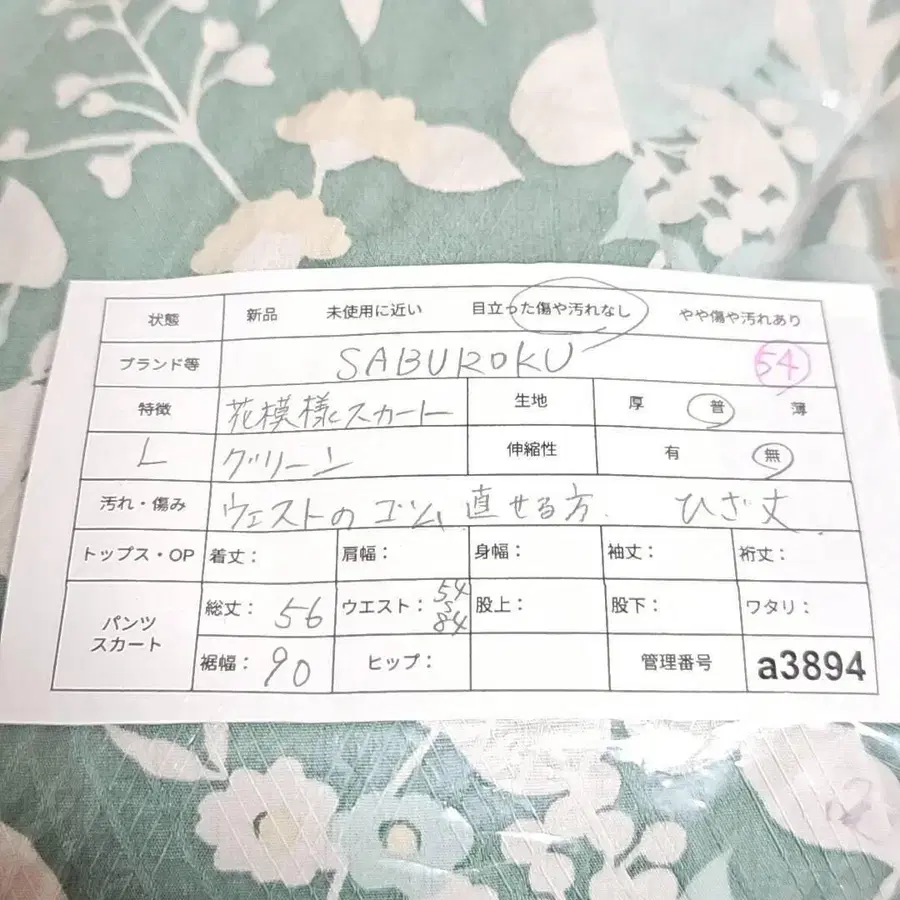 状態 新品 未使用に近い 目立った傷や汚れなし やや傷や汚れあり
ブランド等 SABUROKU 54
特徴 花模様スカート 生地 厚 普 薄
L グリーン 伸縮性 有 無
汚れ・傷み ウェストのゴム 直せる方. ひざ丈
トップス・OP 着丈: 肩幅: 身幅: 袖丈: 裄丈:
パンツ スカート 総丈: 56 ウエスト: 54 S 84 股上: 股下: ワタリ:
裾幅: 90 ヒップ: 管理番号 a3894